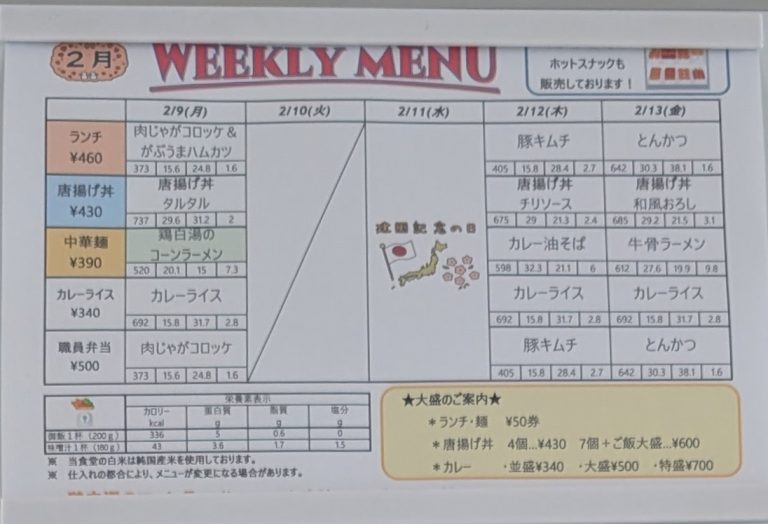 2月
WEEKLY MENU
ホットスナックも
販売しております！
2/9(月) 2/10(火) 2/11(水) 2/12(木) 2/13(金)
ランチ
¥460
肉じゃがコロッケ＆
がぶうまハムカツ
373 15.6 24.8 1.6
豚キムチ
405 15.8 28.4 2.7
とんかつ
642 30.3 38.1 1.6
唐揚げ丼
¥430
唐揚げ丼
タルタル
737 29.6 31.2 2
唐揚げ丼
チリソース
675 29 21.3 2.4
唐揚げ丼
和風おろし
685 29.2 21.5 3.1
中華麺
¥390
鶏白湯の
コーンラーメン
520 20.1 15 7.3
建国記念の日
カレー油そば
598 32.3 21.1 6
牛骨ラーメン
612 27.6 19.9 9.8
カレーライス
¥340
カレーライス
692 15.8 31.7 2.8
カレーライス
692 15.8 31.7 2.8
カレーライス
692 15.8 31.7 2.8
職員弁当
¥500
肉じゃがコロッケ
373 15.6 24.8 1.6
豚キムチ
405 15.8 28.4 2.7
とんかつ
642 30.3 38.1 1.6
栄養素表示
カロリー 蛋白質 脂質 塩分
kcal g g g
御飯１杯（200ｇ） 336 5 0.6 0
味噌汁１杯（180ｇ） 43 3.6 1.7 1.5
※ 当食堂の白米は純国産米を使用しております。
※ 仕入れの都合により、メニューが変更になる場合があります。
★大盛のご案内★
＊ランチ・麺 ¥50券
＊唐揚げ丼 4個…¥430 7個＋ご飯大盛…¥600
＊カレー ・並盛¥340 ・大盛¥500 ・特盛¥700